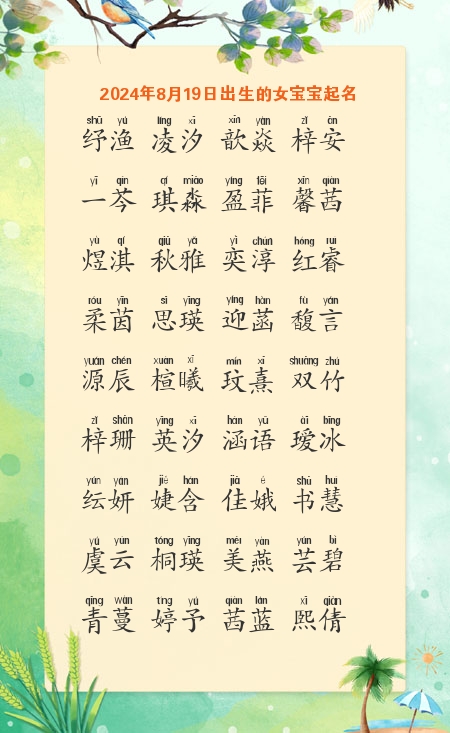 2024年8月19日出生的女宝宝起名
shū yú líng xī xīn yàn zǐ ān
纾渔 凌汐 歆焱 梓安
yī qín qí miǎo yíng fēi xīn qiàn
一芩 琪淼 盈菲 馨茜
yù qí qiū yǎ yì chún hóng ruì
煜淇 秋雅 奕淳 红睿
róu yīn sī yīng yíng hàn fù yán
柔茵 思瑛 迎菡 馥言
yuán chén xuān xī mín xī shuāng zhú
源辰 楦曦 玟熹 双竹
zǐ shān yīng xī hán yǔ ài bīng
梓珊 英汐 涵语 瑷冰
yún yán jié hán jiā é shū huì
纭妍 婕含 佳娥 书慧
yú yún tóng yīng měi yàn yún bì
虞云 桐瑛 美燕 芸碧
qīng wàn tíng yú qiàn lán xī qiàn
青蔓 婷予 茜蓝 熙倩